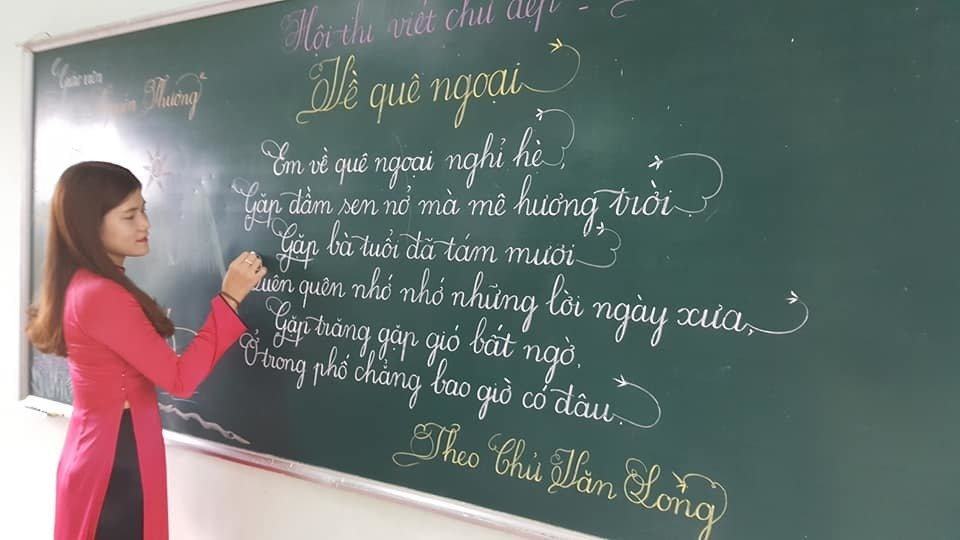 Hội thi viết chữ đẹp -
Giáo viên
Thương
Về quê ngoại
Em về quê ngoại nghỉ hè,
Gặp đầm sen nở mà mê hương trời.
Gặp bà tuổi đã tám mươi
quên nhớ nhớ những lời ngày xưa,
Gặp trăng gặp gió bất ngờ,
Ở trong phố chẳng bao giờ có đâu.
Theo Chử Văn Long